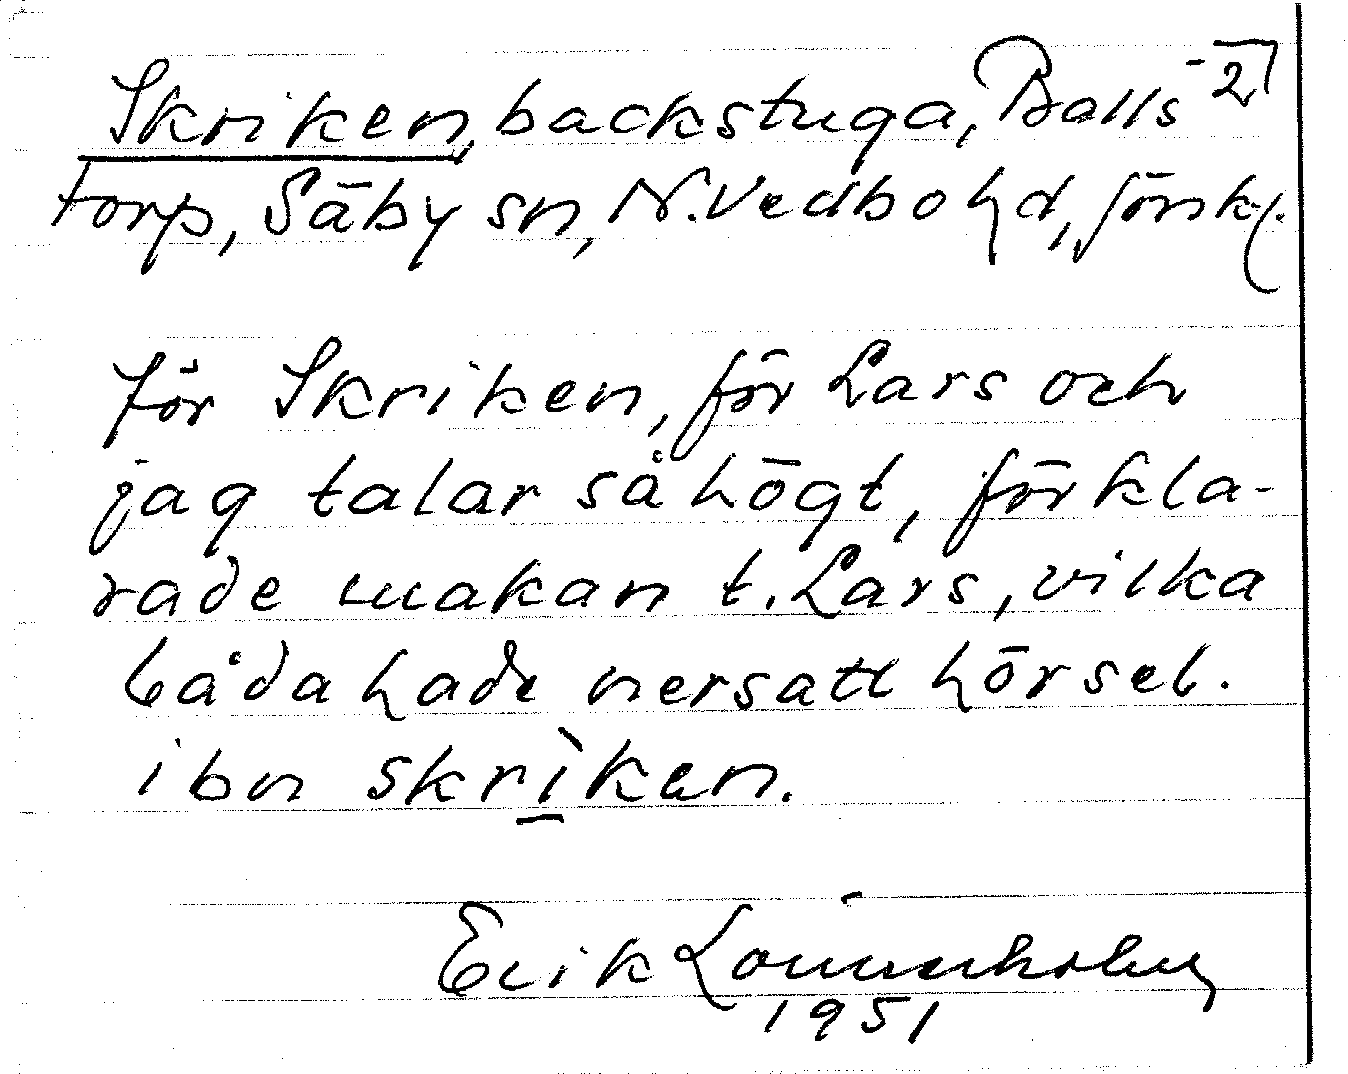 Skriken, backstuga, Balls- 2
torp, Säby sn, N. Vedbo hd, Jönk.
för Skriken, för Lars och
jag talar så högt, förkla-
rade makan t. Lars, vilka
båda hade nersatt hörsel.
ibn skrìken.
Erik
1951